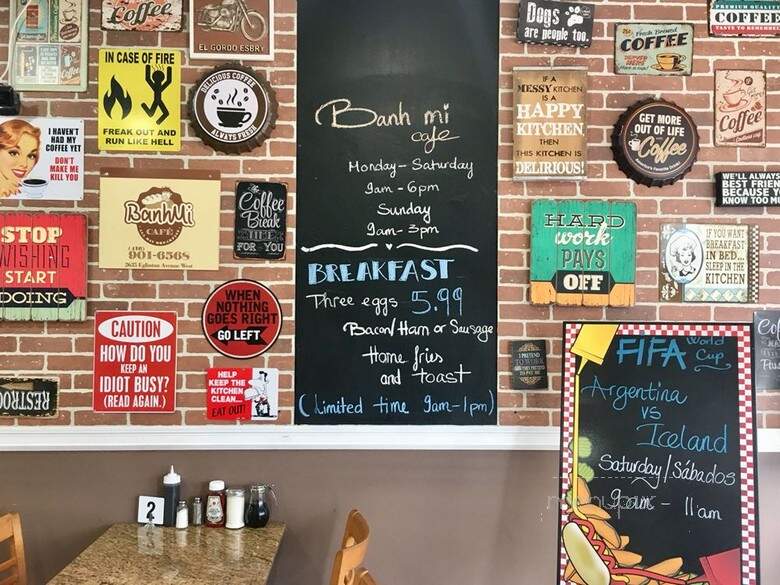 Coffee
Banh Mi
EL GORDO ESBRY
Dogs
are people too.
Fresh Brewed
COFFEE
PREMIUM QUALITY
COFFEE
IN CASE OF FIRE
FREAK OUT AND
RUN LIKE HELL
DELICIOUS COFFEE
ALWAYS FRESH
I HAVEN'T
HAD MY
COFFEE YET
DON'T
MAKE ME
KILL YOU
BanhMi
CAFÉ
(416)
901-6568
2635 Eglinton Avenue West
Coffee
Break
FOR YOU
STOP
WISHING
START
DOING
CAUTION
HOW DO YOU
KEEP AN
IDIOT BUSY?
(READ AGAIN.)
WHEN
NOTHING
GOES RIGHT
GO LEFT
HELP
KEEP THE
KITCHEN
CLEAN...
EAT OUT!
RESTROO
Banh mi
cafe
Monday - Saturday
9am - 6pm
Sunday
9am - 3pm
BREAKFAST
Three eggs 5.99
Bacon/Ham or Sausage
Home fries
and toast
(Limited time 9am-1pm)
IF A
MESSY KITCHEN
IS A
HAPPY
KITCHEN,
THEN
THIS KITCHEN IS
DELIRIOUS!
GET MORE
OUT OF LIFE
Coffee
Coffee
WE'LL ALWAYS
BEST FRIEN
BECAUSE Y
KNOW TOO MU
HARD
work
PAYS
OFF
IF YOU WANT
BREAKFAST
IN BED...
SLEEP IN THE
KITCHEN
I PRETEND
TO WORK
FIFA World
Cup
Argentina
vs
Iceland
Saturday/Sábados
9am - 11am
2